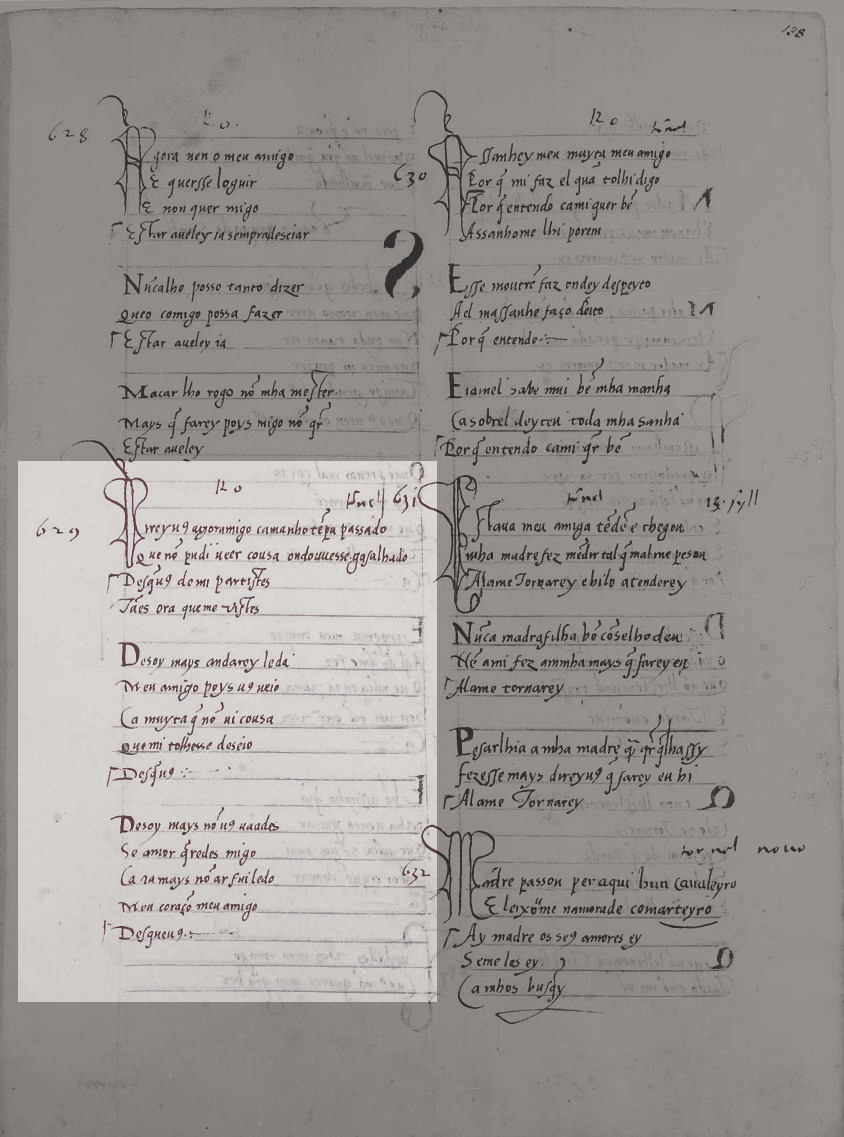 128
628
Ro.
Agora uen o meu amigo
E quersse loguir
E non quer migo
Estar aueley ia sempradesciar
Nūcalho posso tanto dizer
Queo comigo possa fazer
Estar aueley ia
Macar lho rogo nō mha mester
Mays q̄ farey poys migo nō q̄r
Estar aueley
Ro
629
Direyuꝯ agoramigo camanho tēpa passado
Que nō pudi ueer cousa ondouuesse gasalhado
Desq̄uꝯ de mi partistes
Tāes ora que me uistes
Desoy mays andarey leda
Meu amigo poys uꝯ ueio
Ca muyta q̄ nō ui cousa
Que mi tolhesse deseio
Desq̄uꝯ
Desoy mays nō uꝯ uaades
Se amor q̄redes migo
Ca ia mays nō ar fui ledo
Meu coraçō meu amigo
Desqueuꝯ
Ro
630
Assanhey meu muyta meu amigo
Por q̄ mi faz el quā tolhi digo
Por q̄ entendo cami quer bē
Assanhome lhi porem
Esse moutrē faz ondey despeyto
Ael massanhe faço dēito
Por q̄ entendo
E iamel sabe mui bē mha manha
Ca sobrel deyteu toda mha sanha
Por q̄ entendo cami q̄r bē
631
tornel
Estaua meu amiga tēdē e chegou
Mha madre fez mēdir tal q̄ mal me pesou
Alame Tornarey e hilo atenderey
Nūca madra filha bō cōselho deu
Nē ami fez ammha mays q̄ farey eu
Alame tornarey
Pesarlhia amha madre q̄ q̄r q̄lhassy
fezesse mays direyuꝯ q̄ farey eu hi
Alame Tornarey
tornel nouo
632
Madre passou per aqui hun caualeyro
E leixōume namorade comarteyro
Ay madre os seꝯ amores ey
Seme los ey
Ca mhos busq̄y